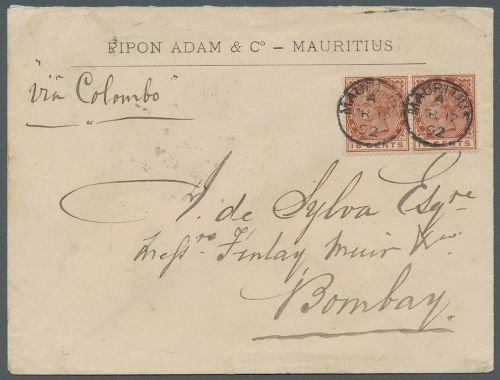 PIPON ADAM & Cº – MAURITIUS
"via Colombo"
MAURITIUS
A
17
92
MAURITIUS
A
17
92
16 CENTS
16 CENTS
J. de Sylva Esqre
Messrs Finlay Muir & Co
Bombay.